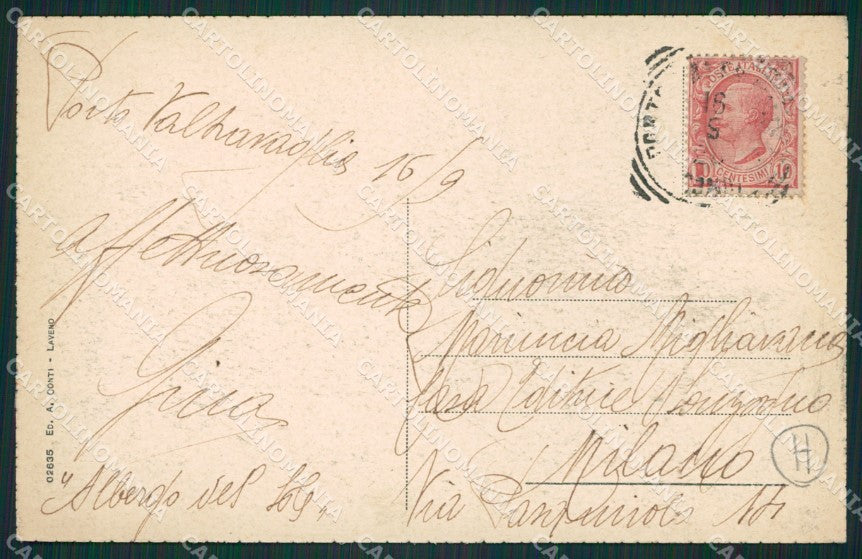 Porto Valtravaglia
16/9
affettuosamente
Gina
"Albergo del Sole"
Signorina
Mariuccia Migliavacca
Casa Editrice Sonzogno
Milano
Via Pasquirolo 14
H
02635 ED. A. CONTI - LAVENO
POSTE ITALIANE
10 CENTESIMI 10
CARTOLINOMANIA